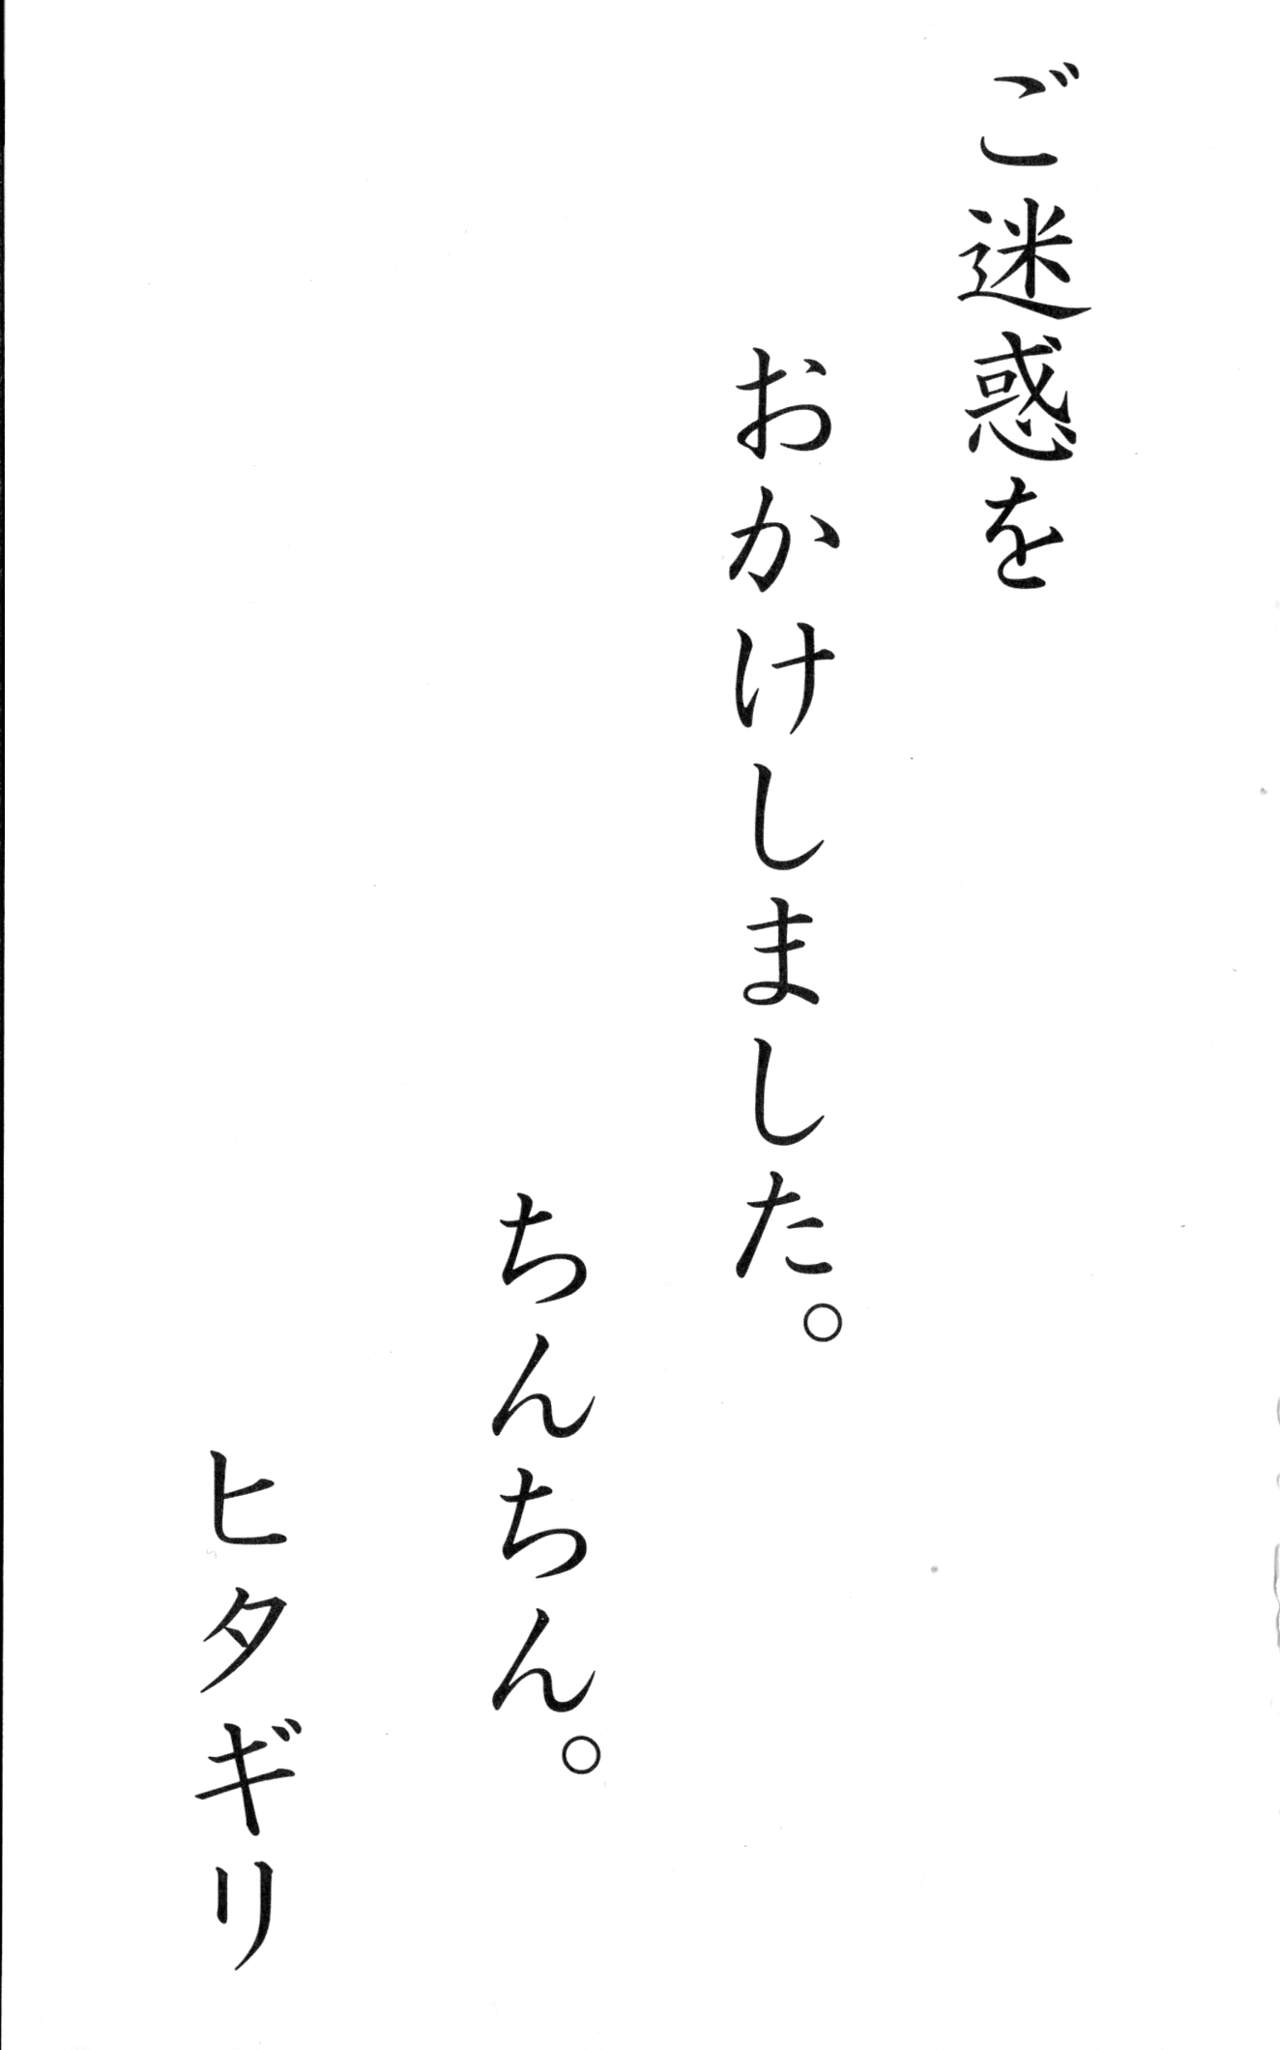 ご迷惑を
おかけしました。
ちんちん。
ヒタギリ